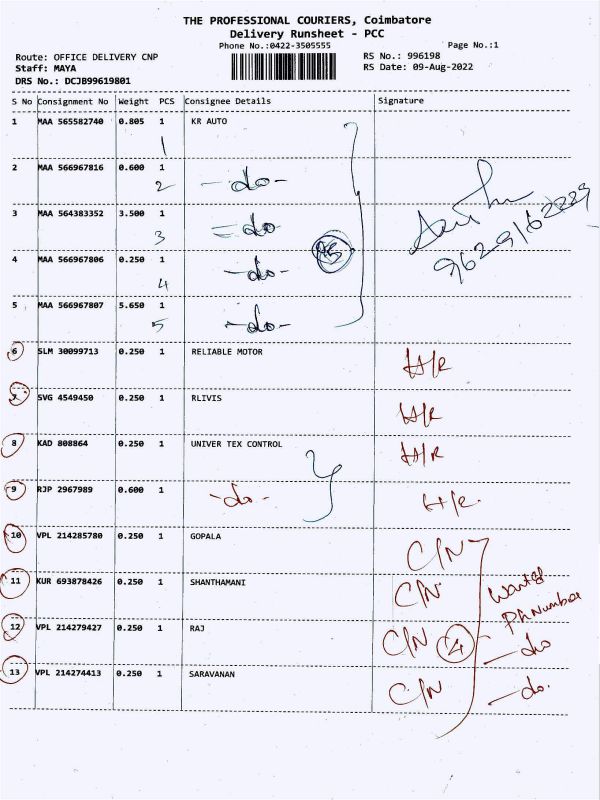 THE PROFESSIONAL COURIERS, Coimbatore
Delivery Runsheet - PCC
Phone No.:0422-3505555
Page No.:1
Route: OFFICE DELIVERY CNP
Staff: MAYA
DRS No.: DCJB99619801
RS No.: 996198
RS Date: 09-Aug-2022
S No Consignment No Weight PCS Consignee Details Signature
1 MAA 565582740 0.805 1 KR AUTO
1
2 MAA 566967816 0.600 1 -do-
2
3 MAA 564383352 3.500 1 =do
3
4 MAA 566967806 0.250 1 -do-
4
5 MAA 566967807 5.650 1 -do-
5
6 SLM 30099713 0.250 1 RELIABLE MOTOR H/R
7 SVG 4549450 0.250 1 RLIVIS H/R
8 KAD 808864 0.250 1 UNIVER TEX CONTROL H/R
9 RJP 2967989 0.600 1 -do- H/R.
10 VPL 214285780 0.250 1 GOPALA C/N
11 KUR 693878426 0.250 1 SHANTHAMANI C/N
Ph Number
12 VPL 214279427 0.250 1 RAJ C/N 4 -do
13 VPL 214274413 0.250 1 SARAVANAN C/N -do.